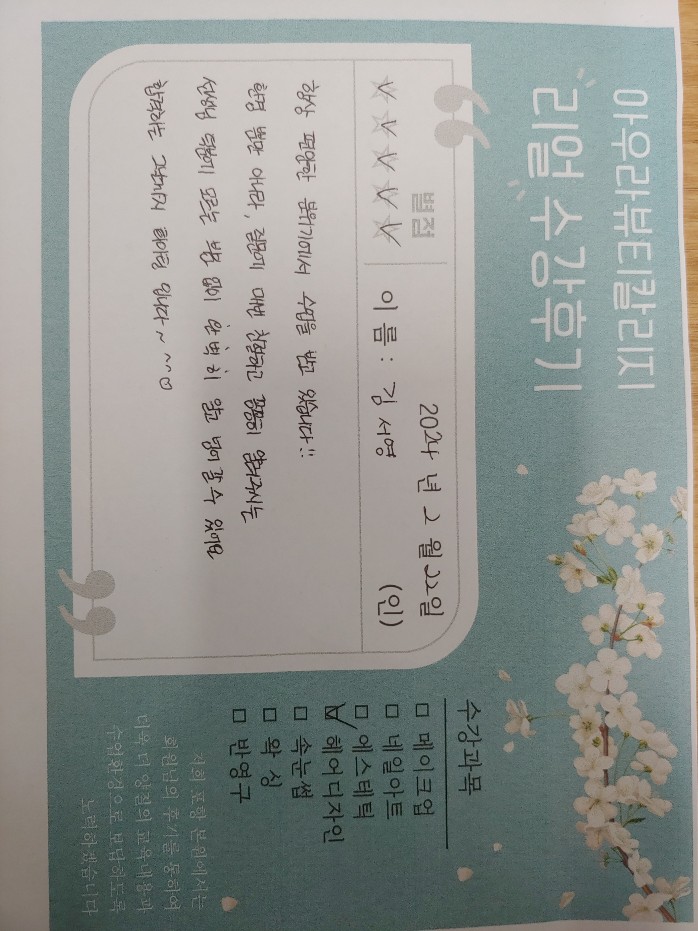 아우라뷰티칼리지
"리얼 수강후기"
2024 년 2 월 22일
별점
이름 : 김 서영 (인)
항상 편안한 분위기에서 수업을 받고 있습니다 !!
현정 쌤만 아니라, 전부다 대변 친절하고 꼼꼼히 알려주시는
선생님 덕분에 모르는 부분 없이 완벽히 알고 넘어갈 수 있어요
합격하는 그날까지 화이팅 입니다~ ~♡
수강과목
□ 메이크업
□ 네일아트
□ 에스테틱
☑ 헤어디자인
□ 속눈썹
□ 왁싱
□ 반영구
저희 포항 본원에서는
회원님의 후기를 통하여
더욱 더 양질의 교육내용과
수업환경으로 보답하도록
노력하겠습니다